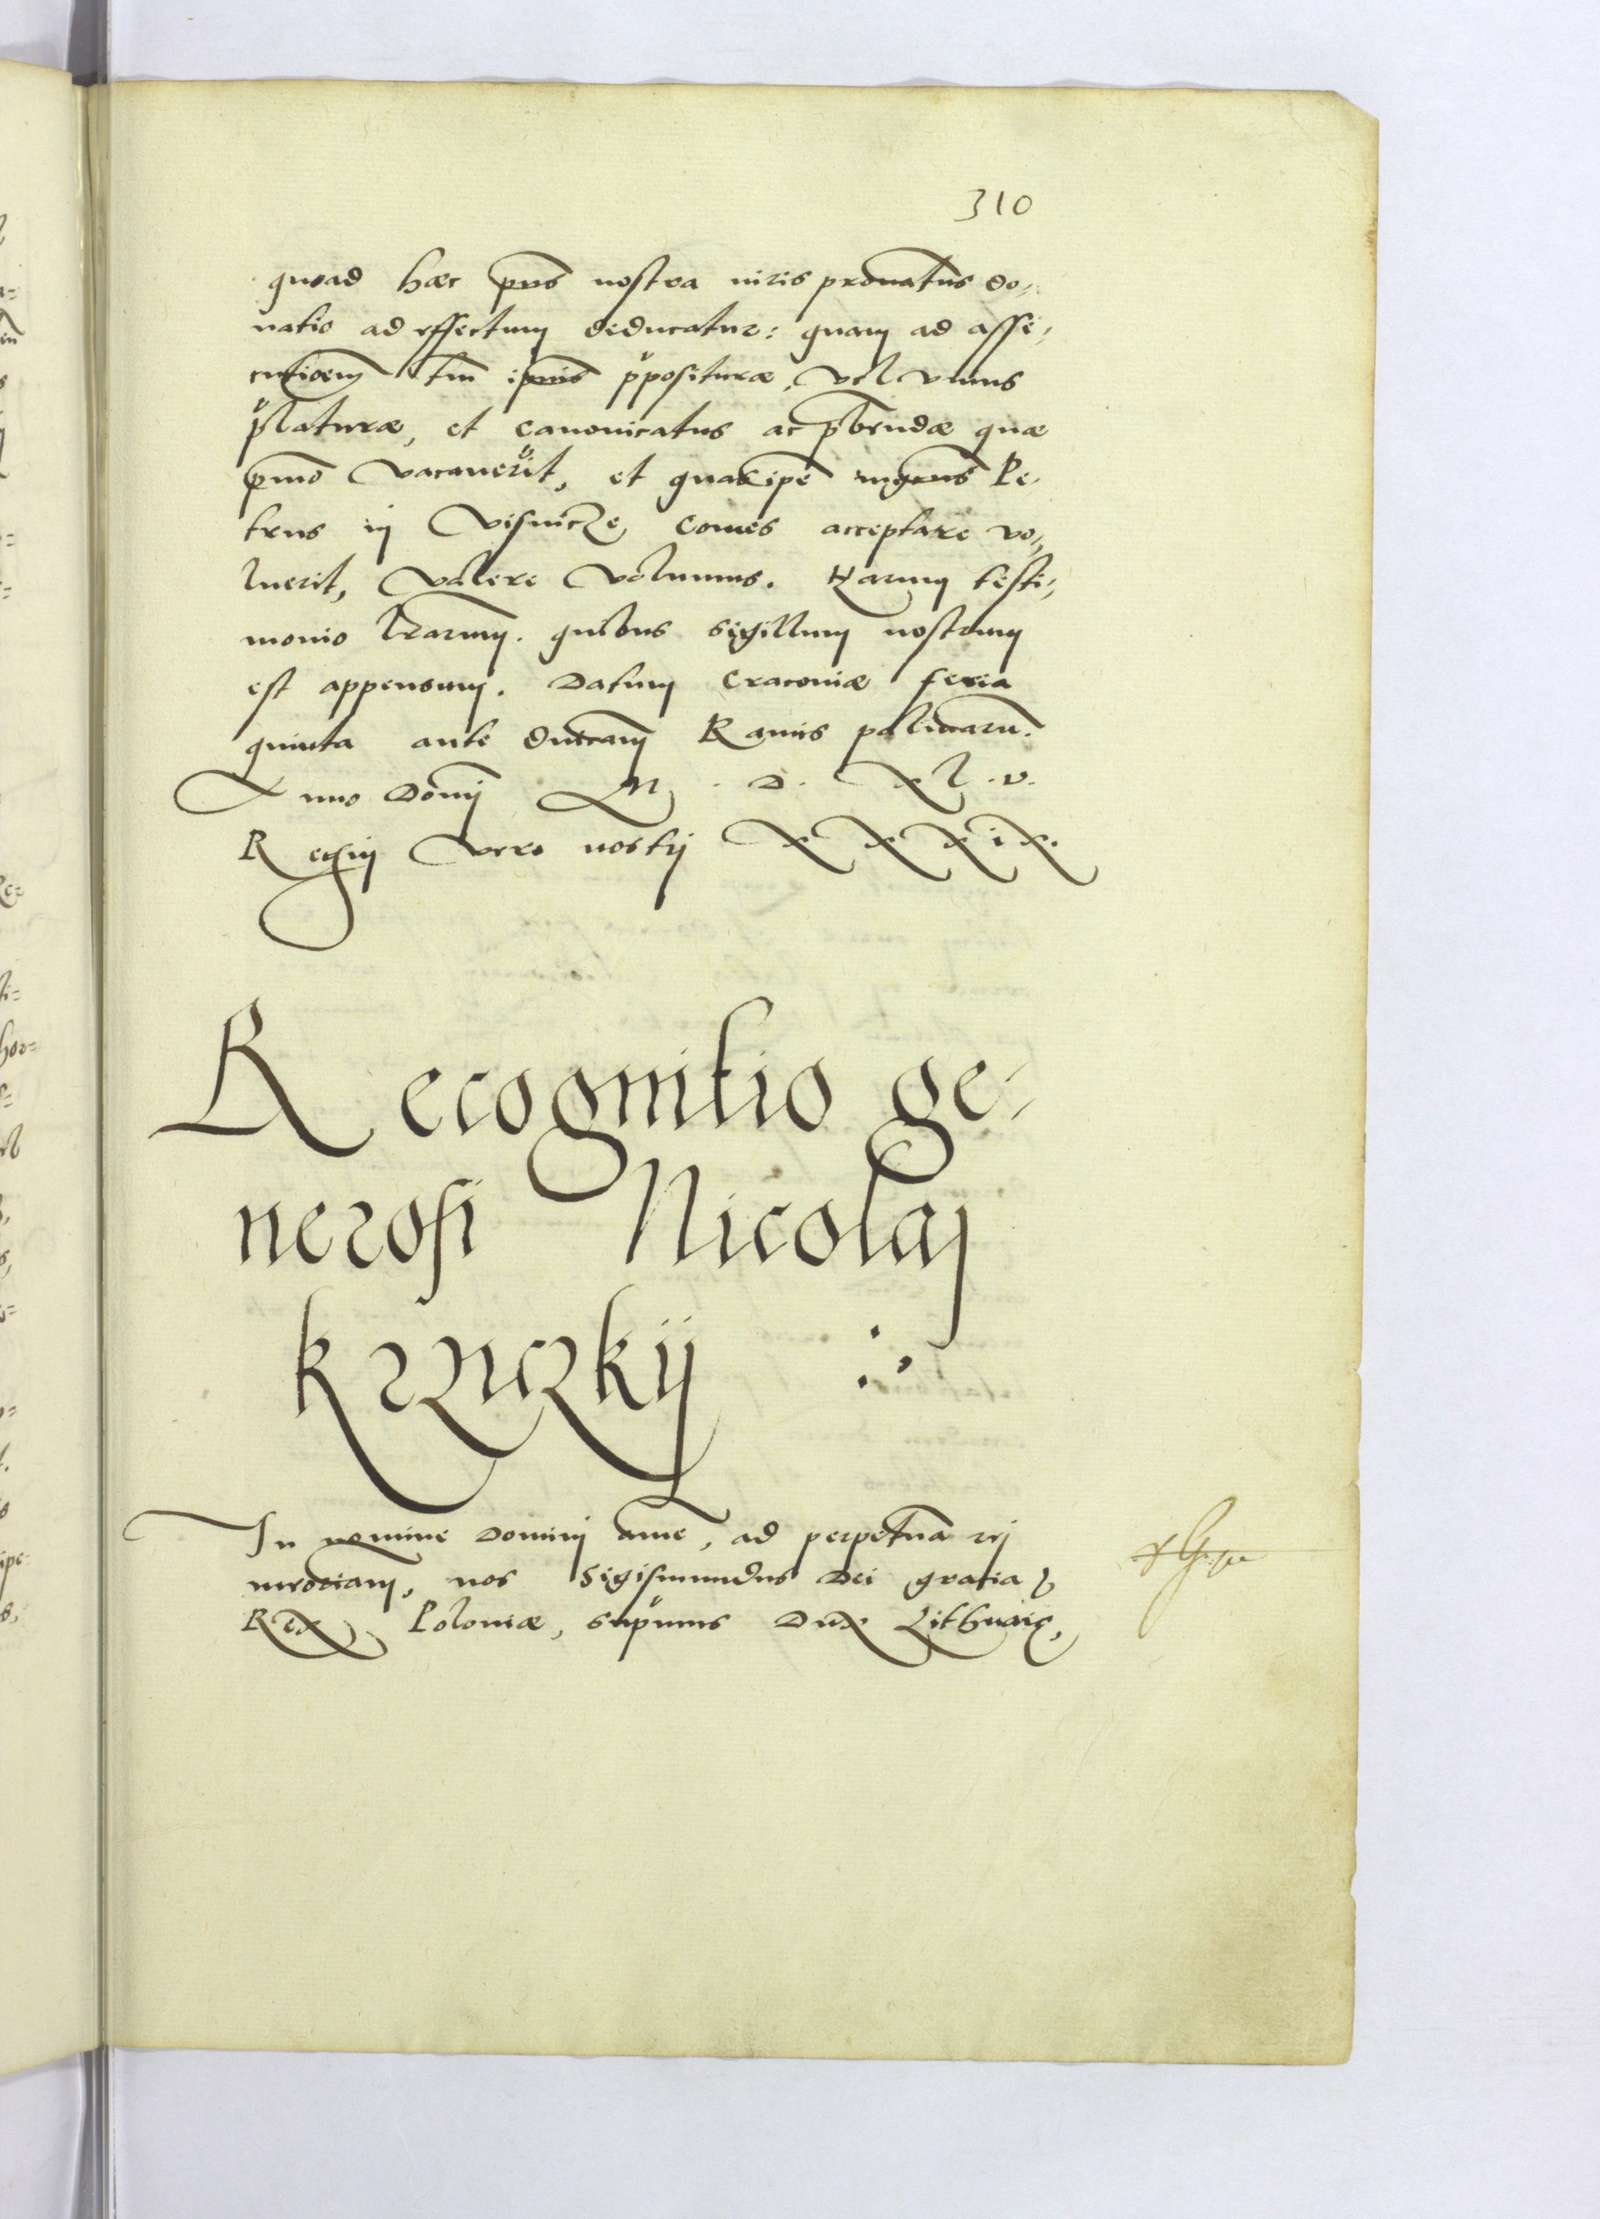 310
quoad hæc pns nostra iuris pronatus do-
natio ad effectum deducatur: quam ad asse-
cutioem tm ipius ppositurae, vel unius
platuræ, et canonicatus ac pbendæ quæ
pmo vacauerit, et quas ipe mgcus Pe-
trus in Visnicze Comes acceptare vo-
luerit, valere volumus. Harum testi-
monio lrarum. quibus sigillum nostrum
est appensum. Datum Cracouiæ feria
quinta ante dnicam Ramis palmaru.
Anno Domi M. D. XL. v.
Regni vero nostri XXXIX.
Recognitio ge-
nerosi Nicolaj
krzuczkij
In nomine Domini ame, ad perpetua rei
memoriam, nos Sigismundus Dei gratia
Rex Poloniæ, supmus Dux Lithuaię,